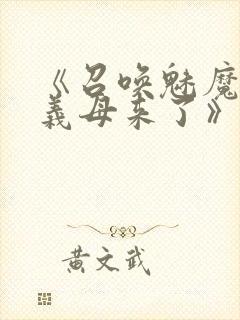 《召唤魅魔
義母来了》
黄文武